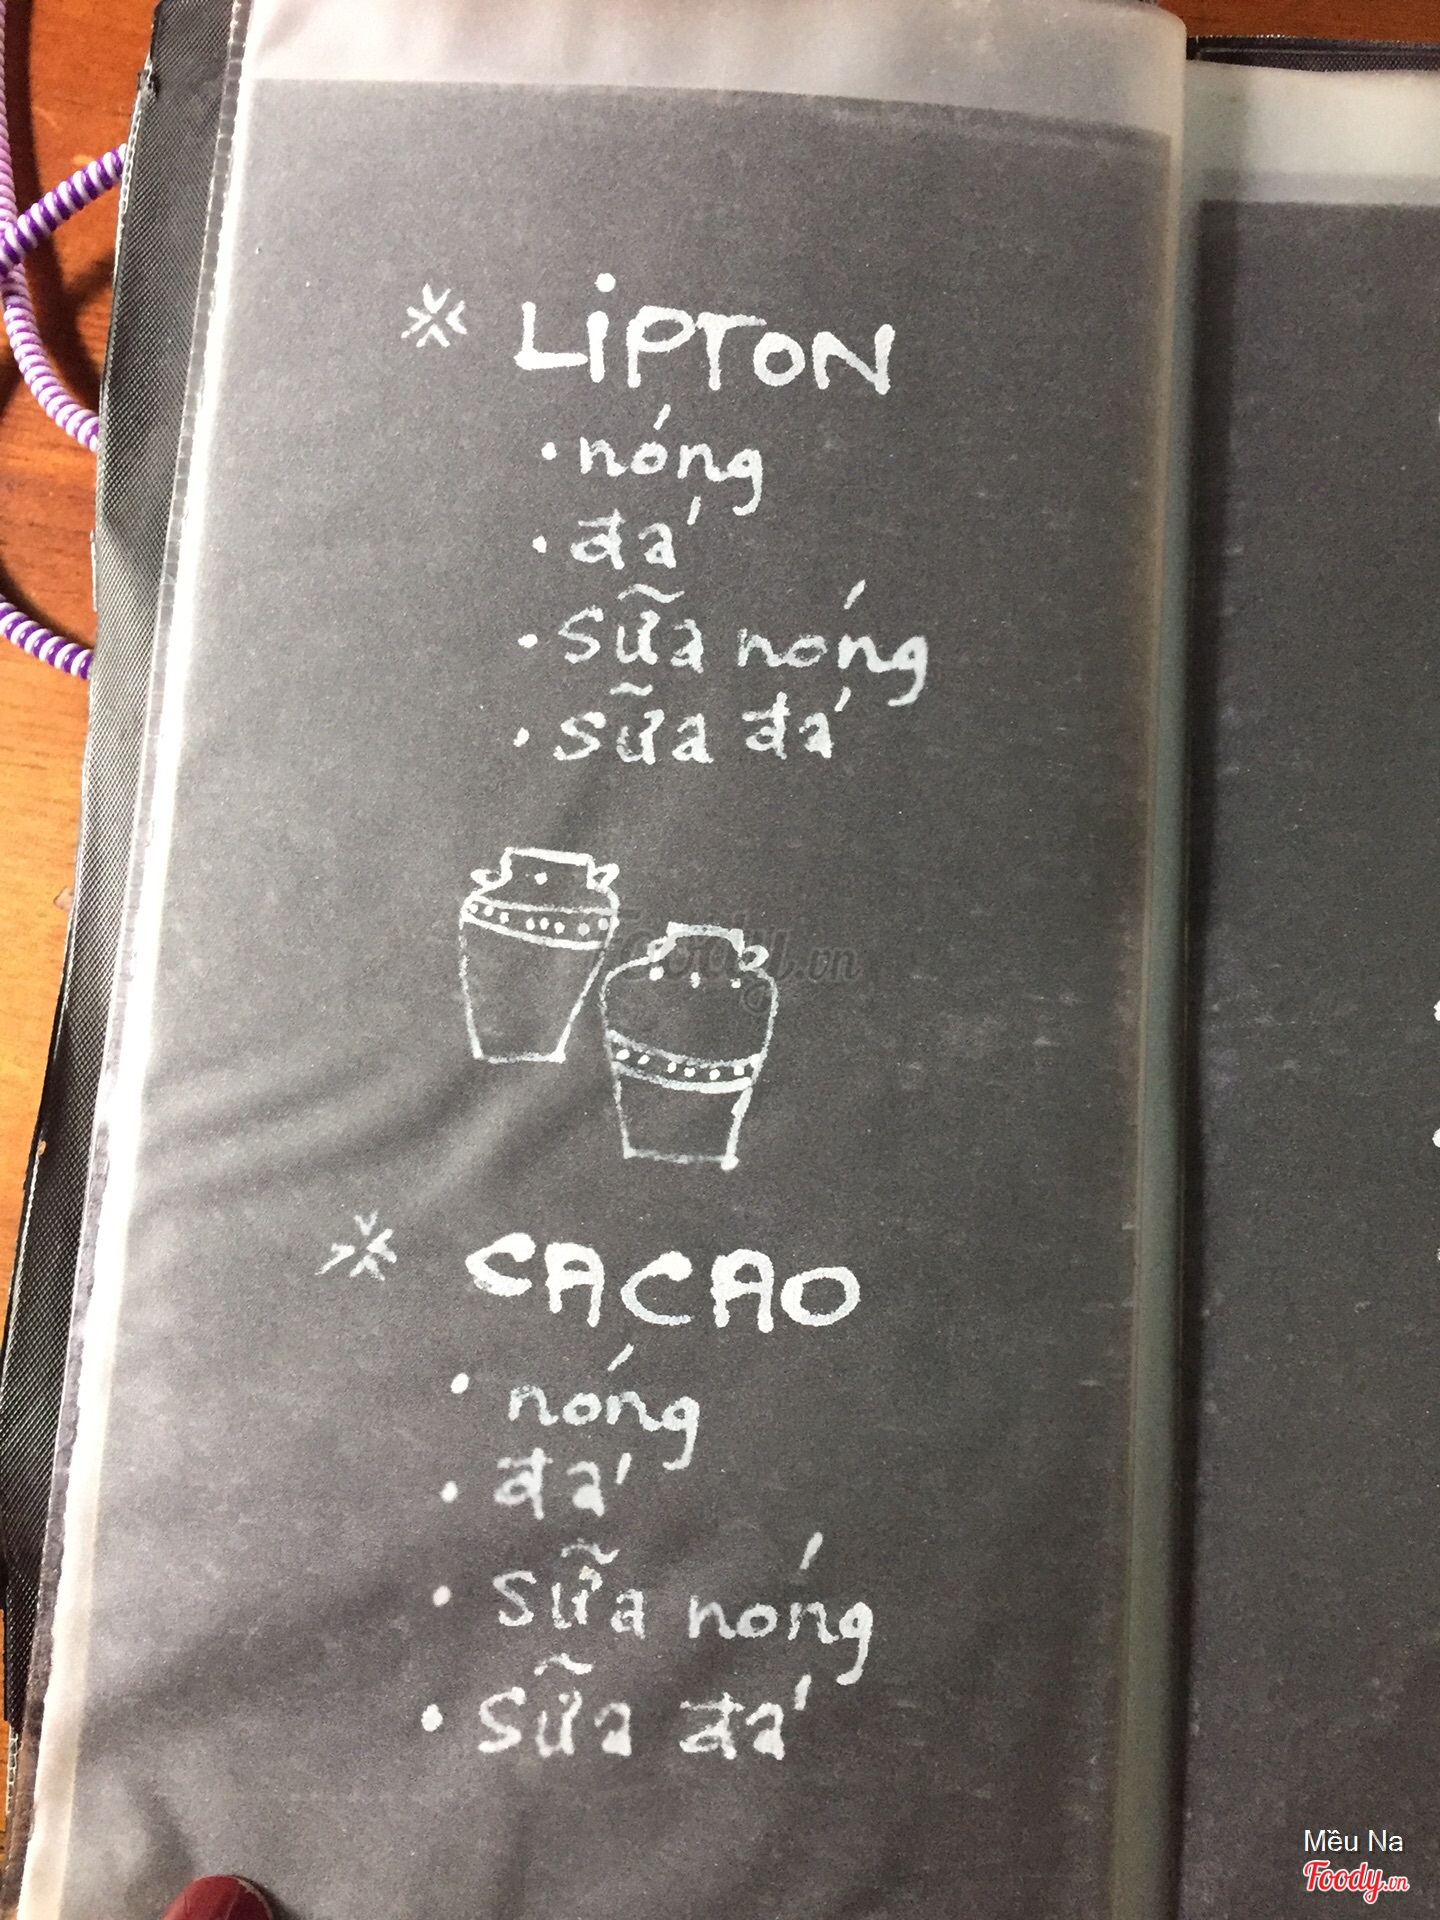 ※ LiPTON
• nóng
• đá
• sữa nóng
• sữa đá
Foody.vn
※ CACAO
• nóng
• đá
• sữa nóng
• sữa đá
Mều Na
Foody.vn